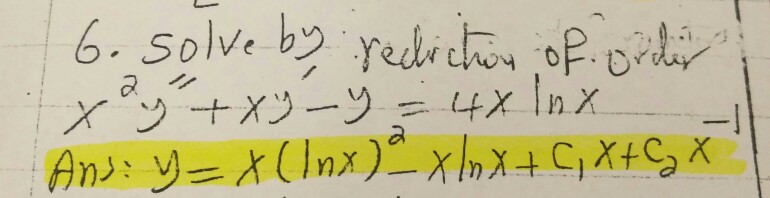 6. solve by reduction of order
x²y″ + xy′ – y = 4x ln x
Ans: y = x(lnx)² – x lnx + C₁x + C₂x⁻¹